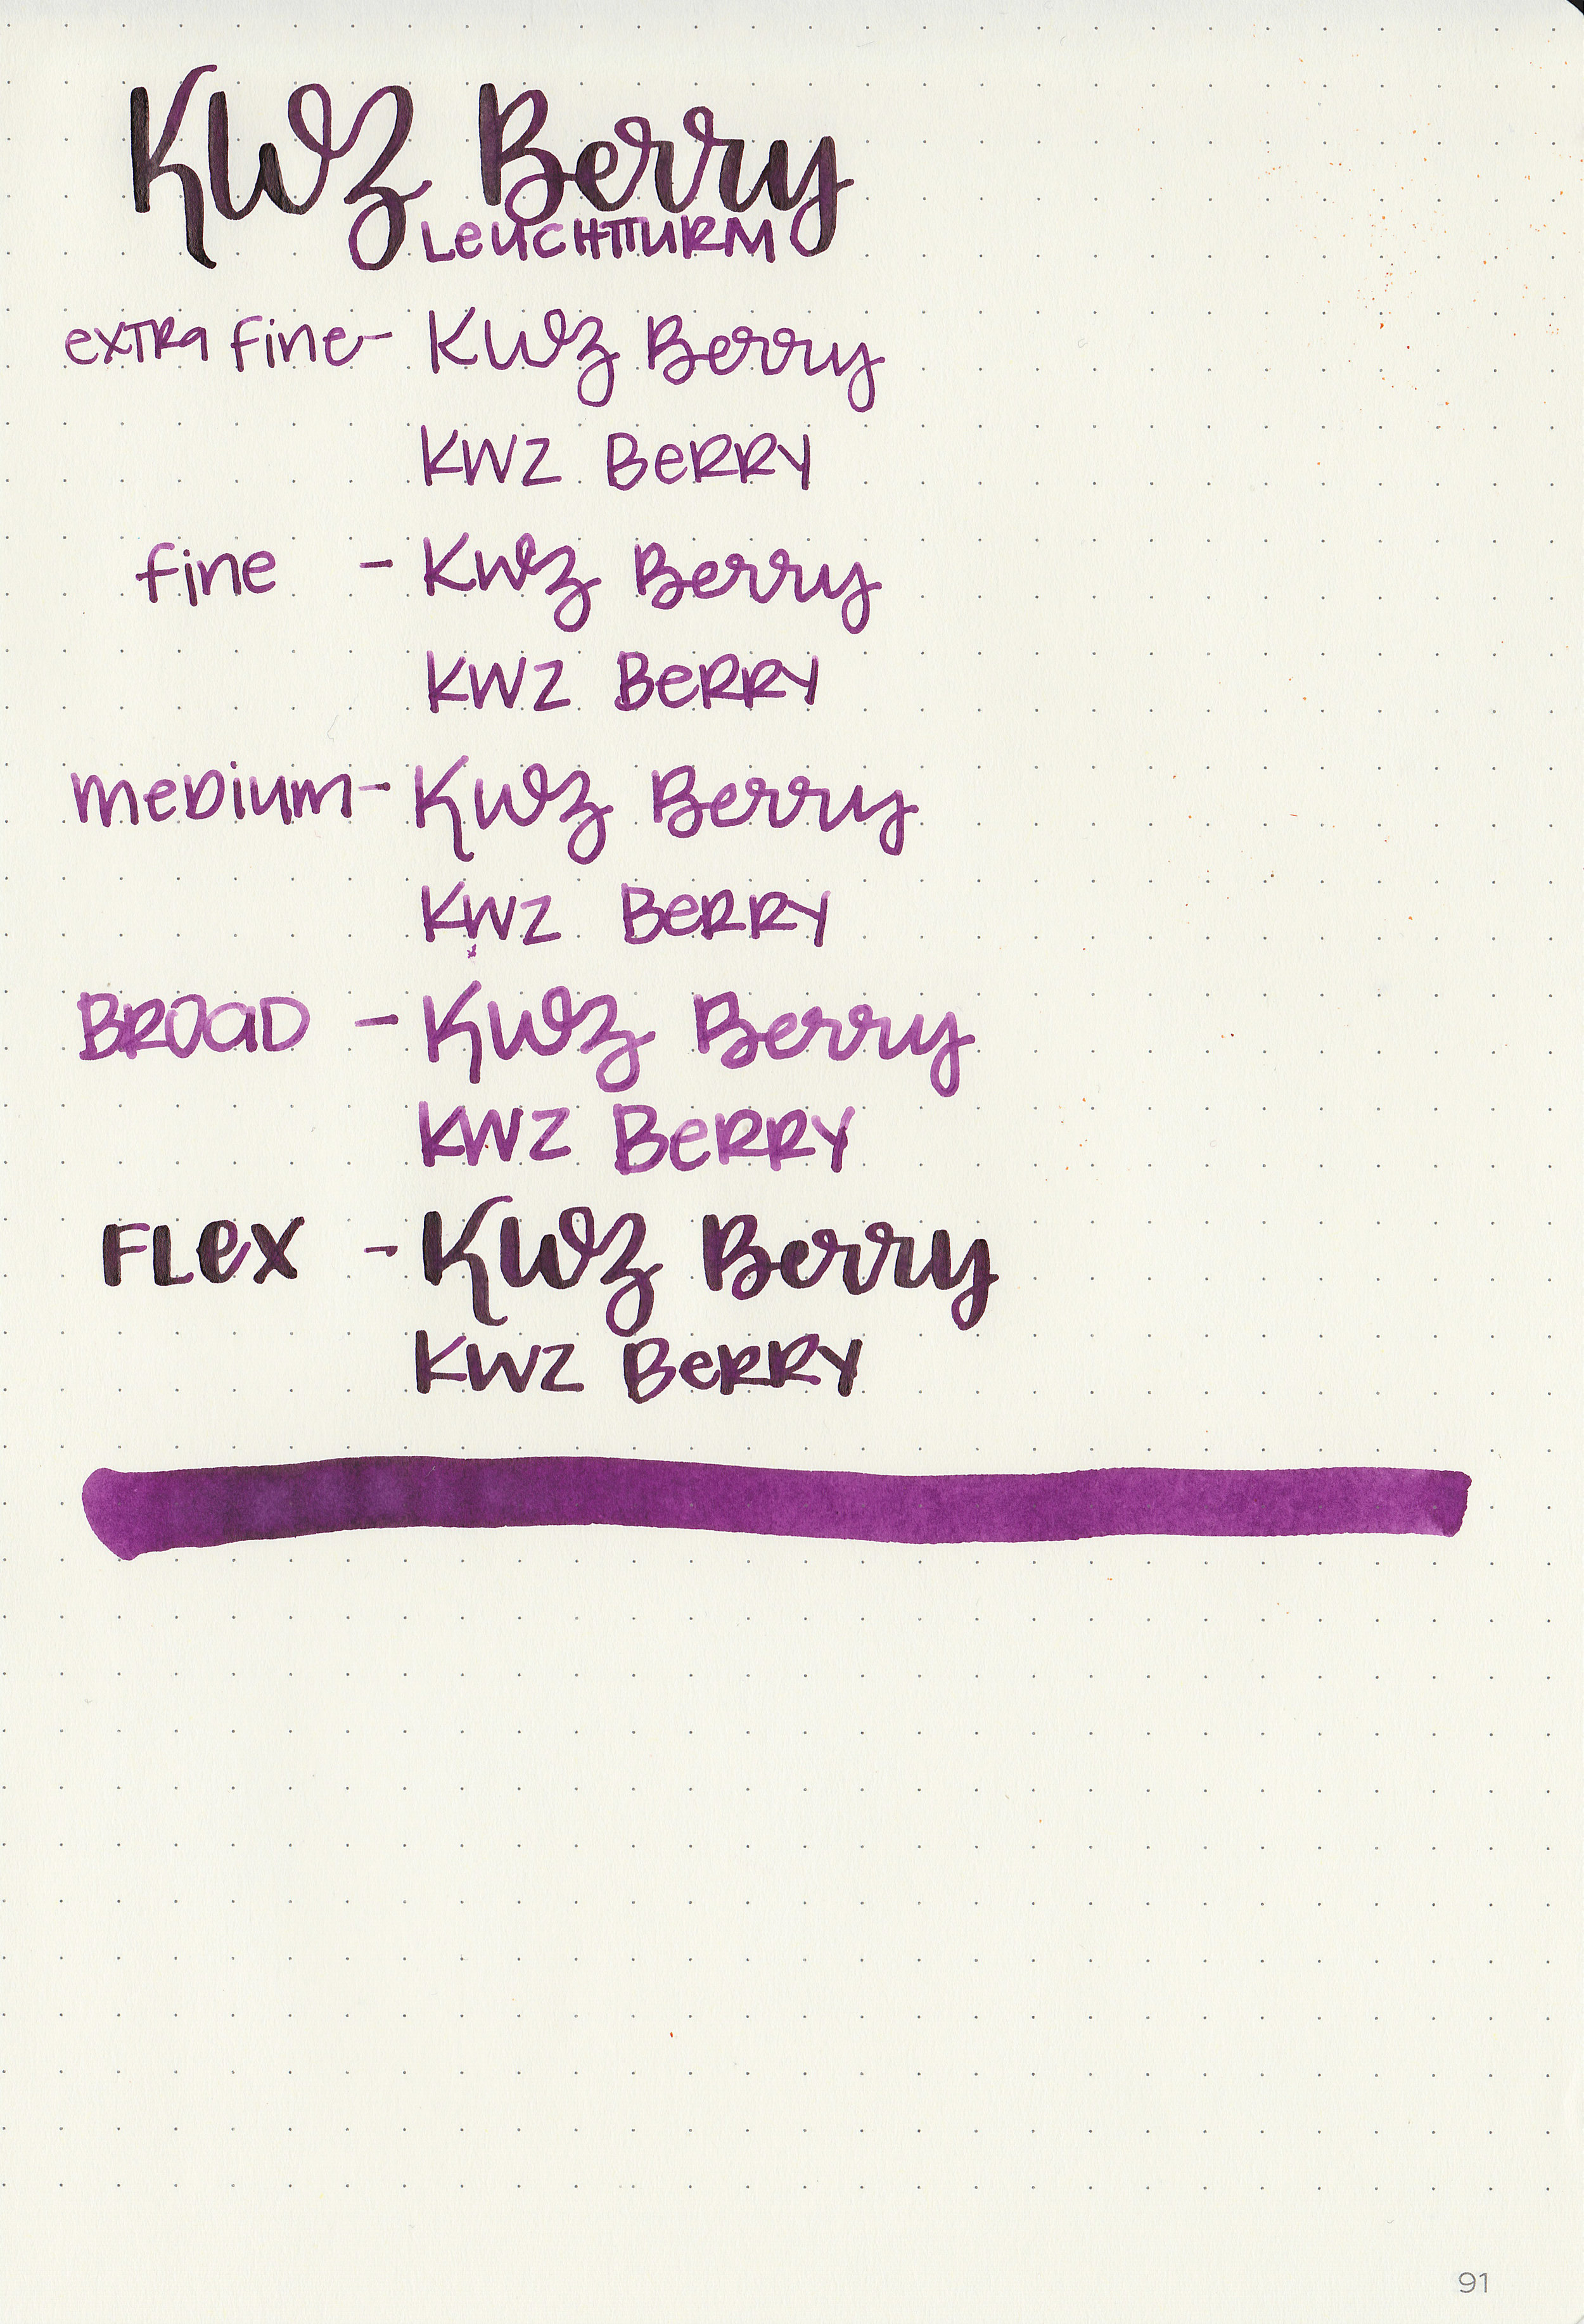 KWZ Berry
LEUCHTTURM
extra fine- KWZ Berry
KWZ BERRY
fine - KWZ Berry
KWZ BERRY
medium- KWZ Berry
KWZ BERRY
BROAD - KWZ Berry
KWZ BERRY
FLEX - KWZ Berry
KWZ BERRY
91